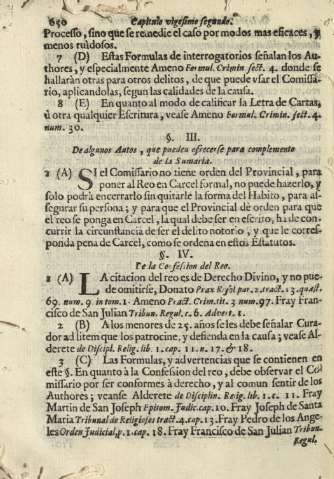 650 Capitulo vigesimo segundo.
Processo, sino que se remedie el caso por modos mas eficaces, y
menos ruidosos.
7 (D) Estas Formulas de interrogatorios señalan los Au-
thores, y especialmente Ameno Formul. Crimin. sect. 4. donde se
hallaràn otras para otros delitos, de que puede vsar el Comissa-
rio, aplicandolas, segun las calidades de la causa.
8 (E) En quanto al modo de calificar la Letra de Cartas,
ù otra qualquier Escritura, vease Ameno Formul. Crimin. sect. 4.
num. 30.
§. III.
De algunos Autos, que pueden ofrecerse para complemento
de la Sumaria.
1 (A) SI el Comissario no tiene orden del Provincial, para
poner al Reo en Carcel formal, no puede hazerlo, y
solo podrà encerrarlo sin quitarle la forma del Habito, para as-
segurar su persona; y para que el Provincial dè orden para què
el reo se ponga en Carcel, la qual debe ser en escrito, ha de con-
currir la circunstancia de ser el delito notorio, y que le corres-
ponda pena de Carcel, como se ordena en estos Estatutos.
§. IV.
De la Confession del Reo.
1 (A) LA citacion del reo es de Derecho Divino, y no pue-
de omitirse, Donato Prax. Regul. par. 2. tract. 13. quæst.
69. num. 9. in tom. 1. Ameno Pract. Crim. tit. 3 num. 97. Fray Fran-
cisco de San Julian Tribun. Regul. c. 6. Advert. 1.
2 (B) A los menores de 25. años se les debe señalar Cura-
dor ad litem que los patrocine, y defienda en la causa; vease Al-
derete de Discipl. Relig. lib. 1. cap. 11. n. 17. & 18.
3 (C) Las Formulas, y advertencias que se contienen en
este §. En quanto à la Confession del reo, debe observar el Co-
missario por ser conformes à derecho, y al comun sentir de los
Authores; veanse Alderete de Disciplin. Relig. lib. 1. c. 11. Fray
Martin de San Joseph Epitom. Judic. cap. 10. Fray Joseph de Santa
Maria Tribunal de Religiosos tract. 4. cap. 13. Fray Pedro de los Ange-
les Orden Judicial, p. 1. cap. 18. Fray Francisco de San Julian Tribun.
Regul.